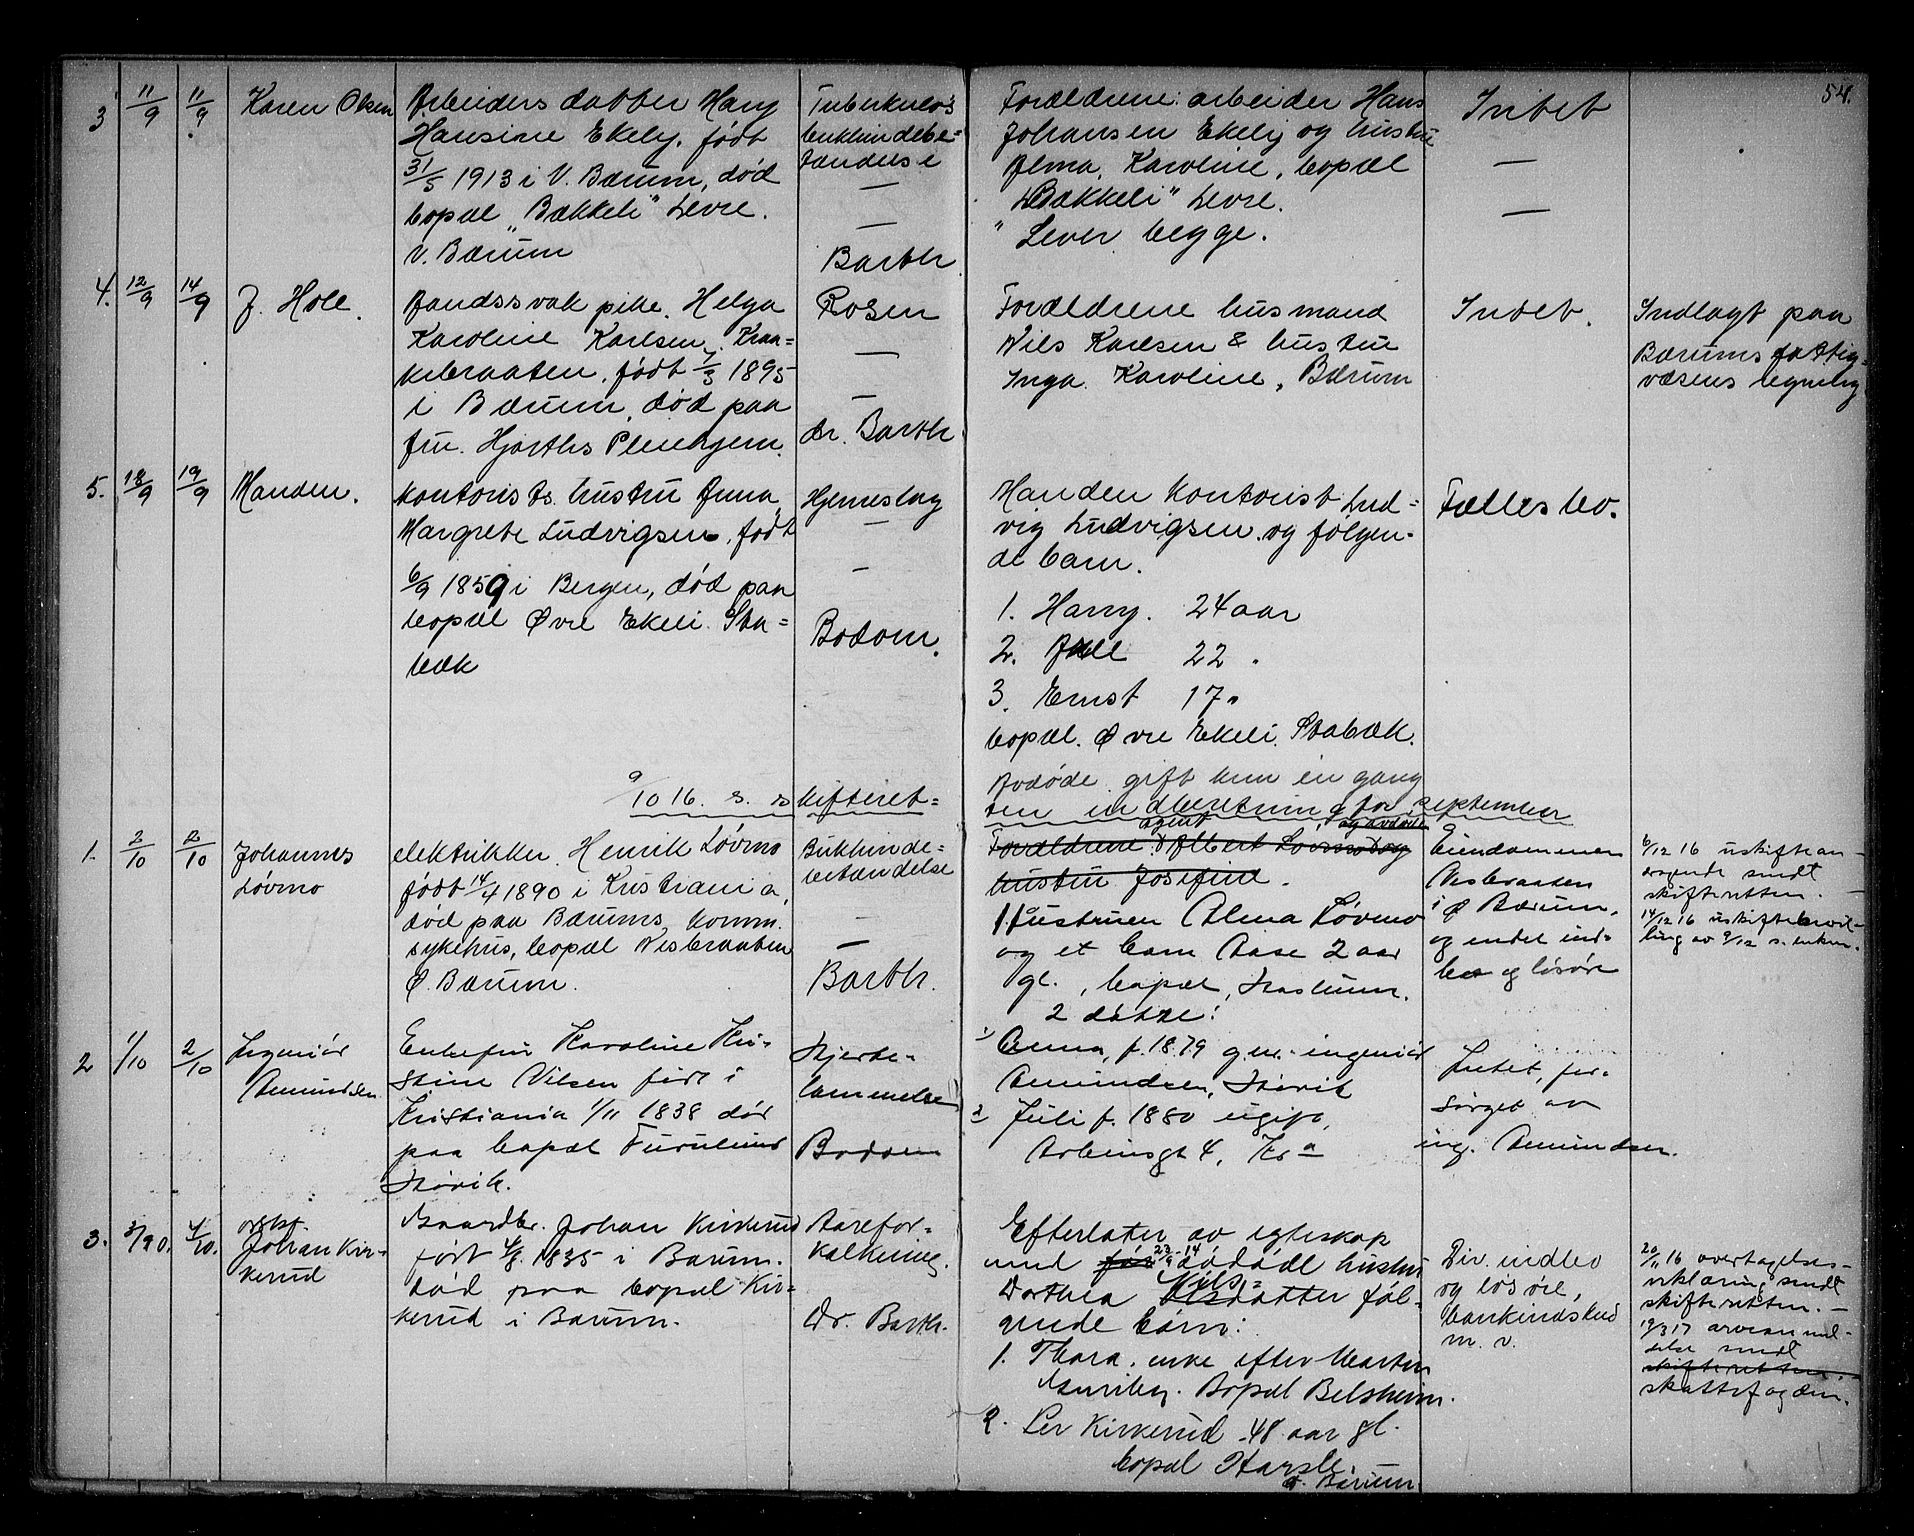 54.
3 11/9 11/9 Karen Olsen
Arbeiders datter Mary
Hansine Ekely, født
31/5 1913 i V. Bærum, død
bopæl „Bakkeli" Levre.
V. Bærum
Tuberkuløs
—
—
Barth
Forældrene: arbeider Hans
Johansen Ekely og hustru
Alma Karoline, bopæl
„Bakkeli" Levre.
Lever begge.
Intet
—
—
4. 12/9 14/9 J. Hole.
Aandssvak pike. Helga
Karoline Karlsen, Kraa=
kebraaten, født 7/3 1895
i Bærum, død paa
fru Hjorths Pleiehjem.
Rosen
—
—
dr. Barth
Forældrene husmand
Nils Karlsen & hustru
Inga Karoline, Bærum
Intet.
Indlagt paa
Bærums fattig-
væsens regning
5. 18/9 19/9 Manden.
Kontorists hustru Anna
Margrete Ludvigsen, født
6/9 1859 i Bergen, død paa
bopæl Øvre Ekeli Sta=
bæk
Hjerneslag
—
—
Bodom.
Manden kontorist Lud=
vig Ludvigsen og følgen-
de barn.
1. Harry. 24 aar
2. 22 "
3. Ernst 17 "
bopæl. Øvre Ekeli Stabæk.
Avdøde gift kun én gang
Fælles bo.
9/10 16. s. skifteret=
ten indberetning for september
1. 2/10 2/10 Johannes
Løvmo
elektrikker Henrik Løvmo
født 14/4 1890 i Kristiania,
død paa Bærums komm.
sykehus, bopæl Nesbraaten
Ø. Bærum.
Bukhinde-
betændelse
—
—
Barth.
agent og avdøde
Forældrene Albert Løvmo og
hustru Josefine.
Hustruen Alma Løvmo
og et barn Aase 2 aar
gl., bopæl, Haslum.
Eiendommen
Nesbraaten
i Ø Bærum,
og endel ind-
bo og løsøre
6/12 16 uskiftean-
dragende sendt
skifteretten. —
14/12 16 uskiftebevil-
ling av 9/12 s.
2 1/10 2/10 Ingeniør
Amundsen
Enkefru Karoline Kri-
stine Nilsen født i
Kristiania 1/11 1838 død
paa bopæl Furulund
Høvik.
Hjerte-
lammelse
Bodom
2 døtre:
1 Anna, f. 1879 g.m. ingeniør
Amundsen, Høvik
2 Juli f. 1880 ugift,
Arbinsgt 4, Kra
Intet, for-
sørget av
ing. Amundsen.
3. 3/10. 4/10. Johan Kir-
kerud
Gaardbr. Johan Kirkerud
født 4/8 1835 i Bærum.
død paa bopæl Kir-
kerud i Bærum.
Aarefor-
kalkning.
Dr. Barth.
Efterlater av egteskap
med før 23/9 -14 avdøde hustru
Dorthea Nils=
Olsdatter føl-
gende barn:
1. Thora, enke efter Marten
Gunriby. Bopæl Belsheim.
2. Per Kirkerud 48 aar gl.
bopæl Harsle,
V. Bærum
Div. indbo
og løsøre,
bankindskud
m. v.
20/11 16 overtagelses-
erklæring sendt
skifteretten. —
19/3 17 arveanmel-
delse sendt
skifteretten.
skattefogden.